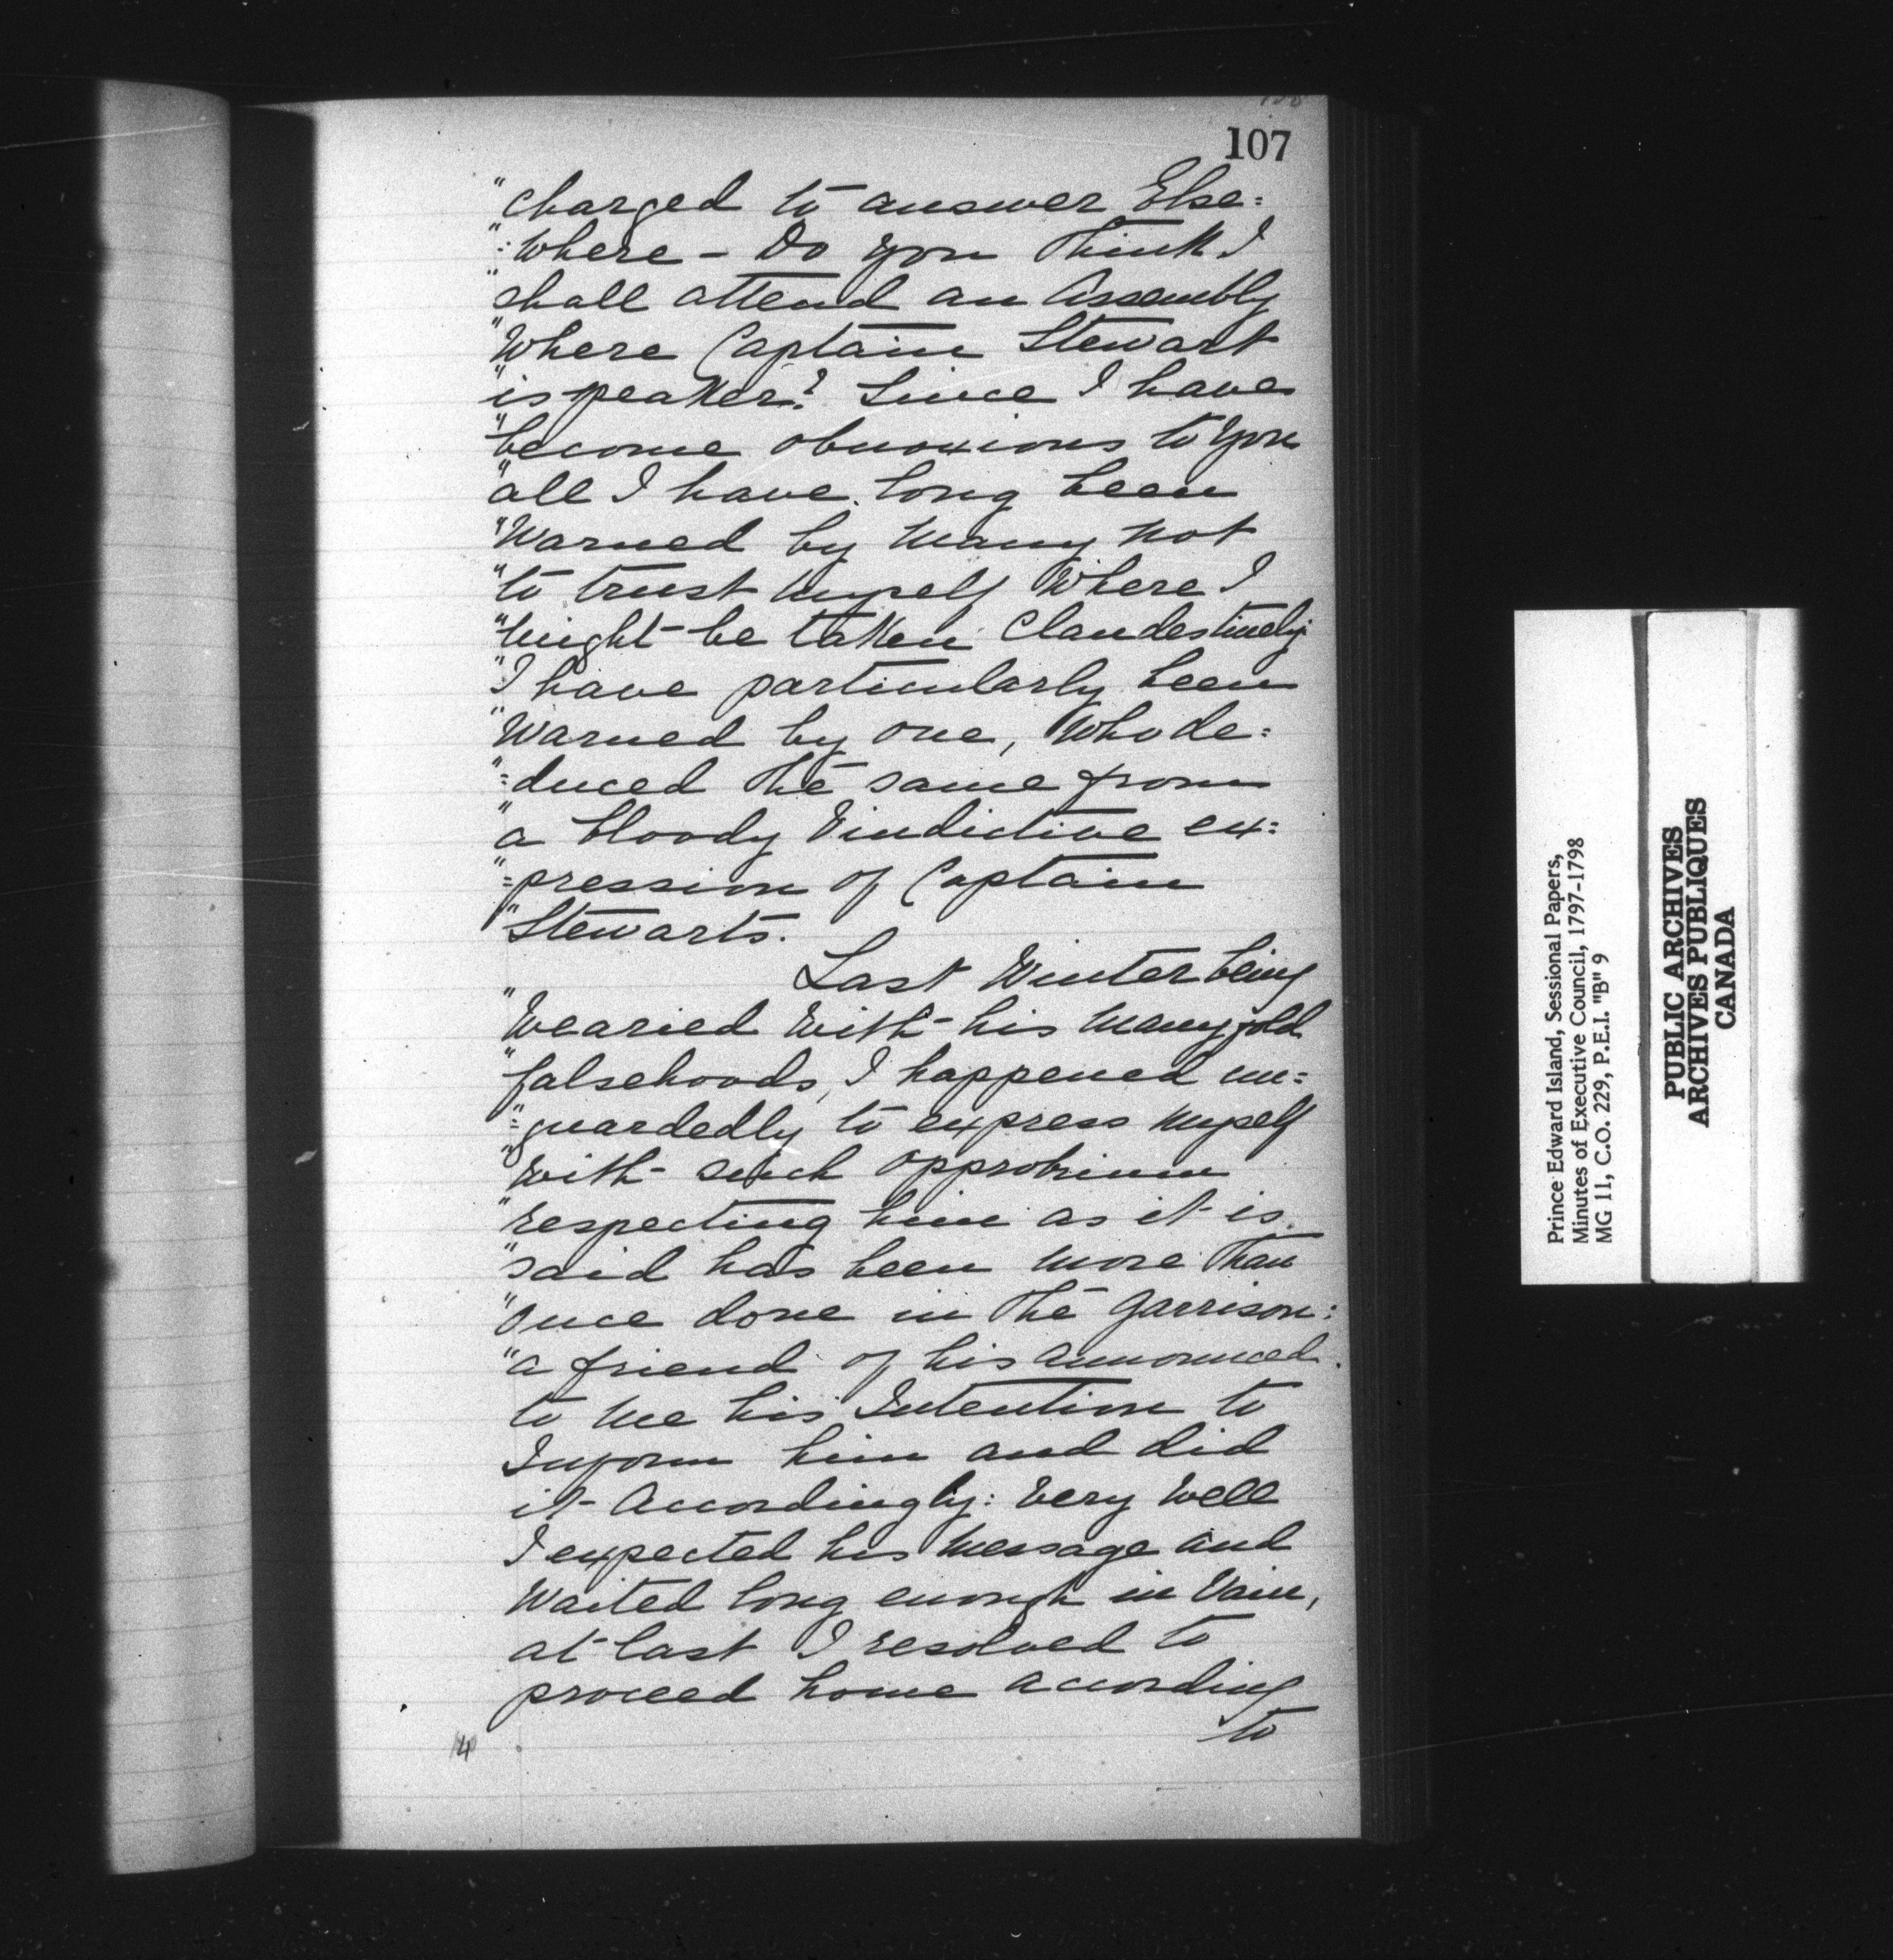 107
"charged to answer Else=
"=Where - Do you Think I
"shall attend an Assembly
"Where Captain Stewart
"is speaker? Since I have
"become obnoxious to You
"all I have long been
"Warned by Many not
"to trust Myself Where I
"Might be taken Clandestinely
"I have particularly been
"Warned by one, Who de=
"=duced the same from
"a bloody Vindictive ex=
"=pression of Captain
"Stewarts.
Last Winter being
"Wearied With his Manyfold
"falsehoods, I happened un=
"=guardedly to express Myself
"With such opprobrium
"respecting him as it is
"said has been More Than
"Once done in the Garrison:
"a friend of his announced
to Me his Intention to
Inform him and did
it Accordingly: Very Well
I expected his Message and
Waited long enough in Vain,
at last I resolved to
proceed home according
to
14
Prince Edward Island, Sessional Papers,
Minutes of Executive Council, 1797-1798
MG 11, C.O. 229, P.E.I. "B" 9
PUBLIC ARCHIVES
ARCHIVES PUBLIQUES
CANADA